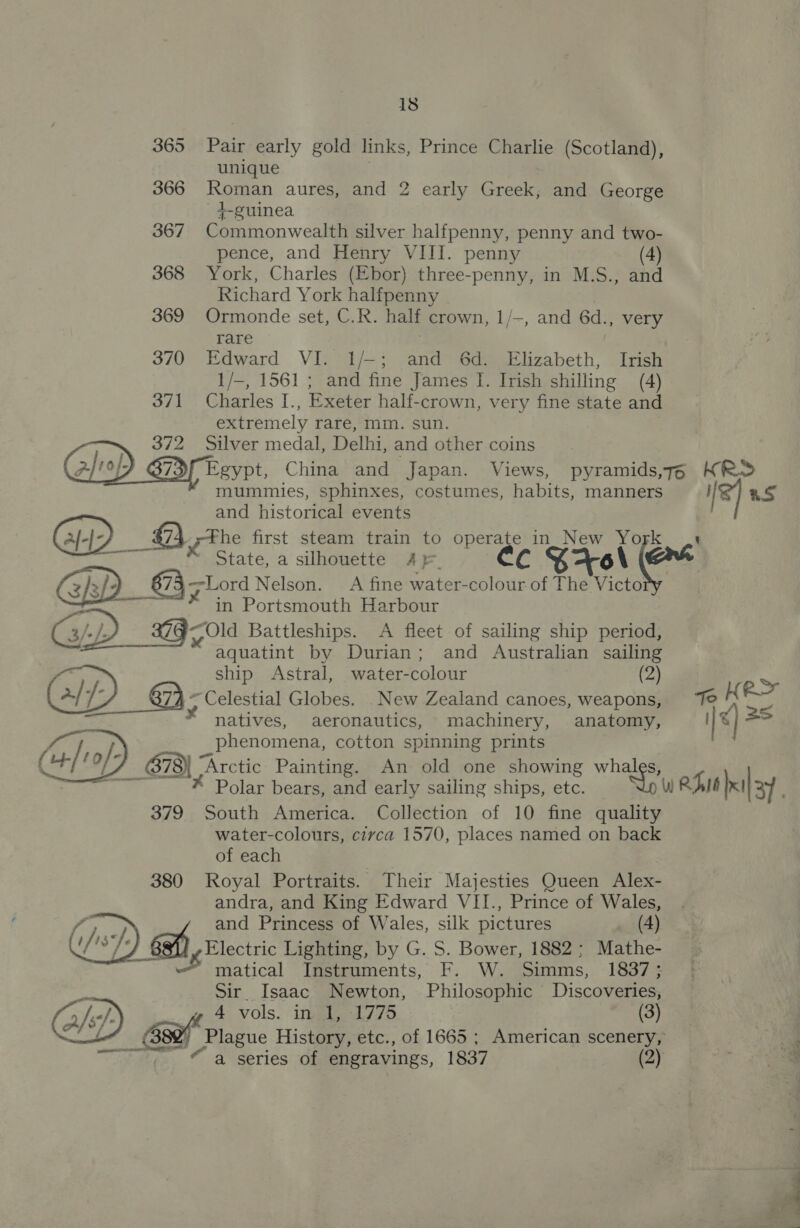 18
365 Pair early gold links, Prince Charlie (Scotland),
unique
366 Roman aures, and 2 early Greek, and George
¼-guinea
367 Commonwealth silver halfpenny, penny and two-
pence, and Henry VIII. penny (4)
368 York, Charles (Ebor) three-penny, in M.S., and
Richard York halfpenny
369 Ormonde set, C.R. half crown, 1/–, and 6d., very
rare
370 Edward VI. 1/–; and 6d. Elizabeth, Irish
1/–, 1561; and fine James I. Irish shilling (4)
371 Charles I., Exeter half-crown, very fine state and
extremely rare, mm. sun.
372 Silver medal, Delhi, and other coins
2/10/- 373 Egypt, China and Japan. Views, pyramids, To KRS
mummies, sphinxes, costumes, habits, manners
and historical events
2/-/- 374 The first steam train to operate in New York
State, a silhouette
3/3/- 375 Lord Nelson. A fine water-colour of The Victory
in Portsmouth Harbour
3/-/- 376 Old Battleships. A fleet of sailing ship period,
aquatint by Durian; and Australian sailing
ship Astral, water-colour (2)
377 Celestial Globes. New Zealand canoes, weapons, To KRS
natives, aeronautics, machinery, anatomy,
phenomena, cotton spinning prints
4/10/- 378 Arctic Painting. An old one showing whales,
Polar bears, and early sailing ships, etc.
379 South America. Collection of 10 fine quality
water-colours, circa 1570, places named on back
of each
380 Royal Portraits. Their Majesties Queen Alex-
andra, and King Edward VII., Prince of Wales,
and Princess of Wales, silk pictures (4)
1/15/- 381 Electric Lighting, by G. S. Bower, 1882; Mathe-
matical Instruments, F. W. Simms, 1837;
Sir Isaac Newton, Philosophic Discoveries,
4 vols. in 1, 1775 (3)
2/5/- 382 Plague History, etc., of 1665; American scenery,
a series of engravings, 1837 (2)